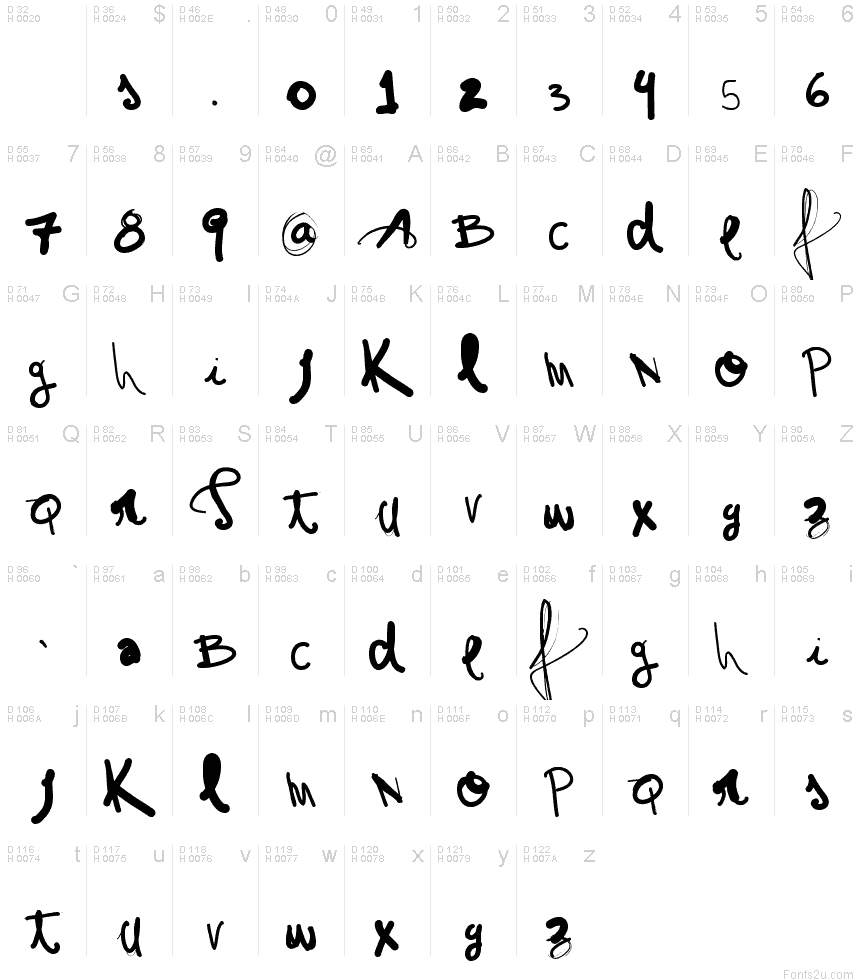 D 32 H 0020 D 36 H 0024 $ D 46 H 002E . D 48 H 0030 0 D 49 H 0031 1 D 50 H 0032 2 D 51 H 0033 3 D 52 H 0034 4 D 53 H 0035 5 D 54 H 0036 6
s . 0 1 2 3 4 5 6
D 55 H 0037 7 D 56 H 0038 8 D 57 H 0039 9 D 64 H 0040 @ D 65 H 0041 A D 66 H 0042 B D 67 H 0043 C D 68 H 0044 D D 69 H 0045 E D 70 H 0046 F
7 8 9 @ A B c d e f
D 71 H 0047 G D 72 H 0048 H D 73 H 0049 I D 74 H 004A J D 75 H 004B K D 76 H 004C L D 77 H 004D M D 78 H 004E N D 79 H 004F O D 80 H 0050 P
g h i j K l m N O P
D 81 H 0051 Q D 82 H 0052 R D 83 H 0053 S D 84 H 0054 T D 85 H 0055 U D 86 H 0056 V D 87 H 0057 W D 88 H 0058 X D 89 H 0059 Y D 90 H 005A Z
Q r S t u v w x y z
D 96 H 0060 ` D 97 H 0061 a D 98 H 0062 b D 99 H 0063 c D 100 H 0064 d D 101 H 0065 e D 102 H 0066 f D 103 H 0067 g D 104 H 0068 h D 105 H 0069 i
` a B c d e f g h i
D 106 H 006A j D 107 H 006B k D 108 H 006C l D 109 H 006D m D 110 H 006E n D 111 H 006F o D 112 H 0070 p D 113 H 0071 q D 114 H 0072 r D 115 H 0073 s
j K l m N O P Q r s
D 116 H 0074 t D 117 H 0075 u D 118 H 0076 v D 119 H 0077 w D 120 H 0078 x D 121 H 0079 y D 122 H 007A z
t u v w x y z
Fonts2u.com